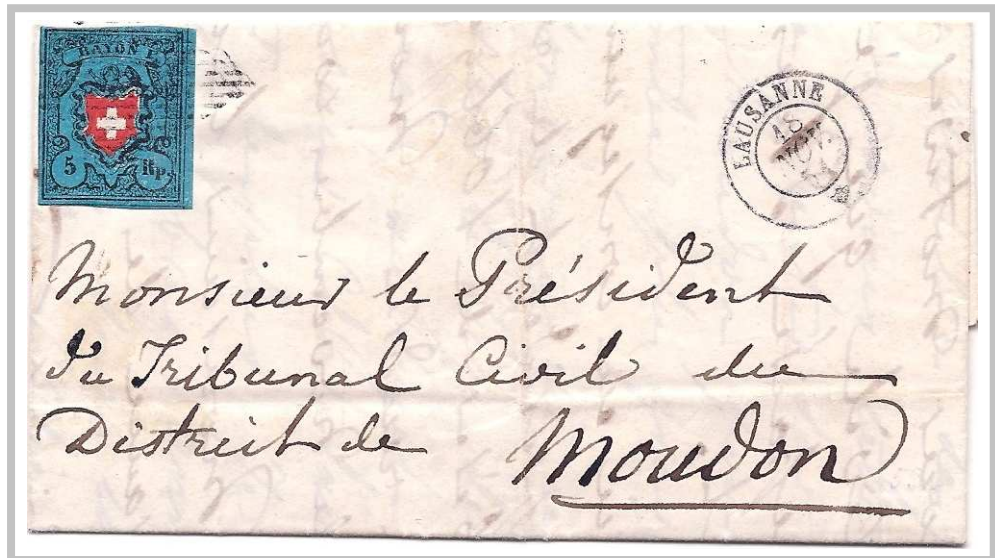 RAYON I.
5 Rp.
LAUSANNE
18
NOV.
51
Monsieur le Président
du Tribunal Civil du
District de Moudon